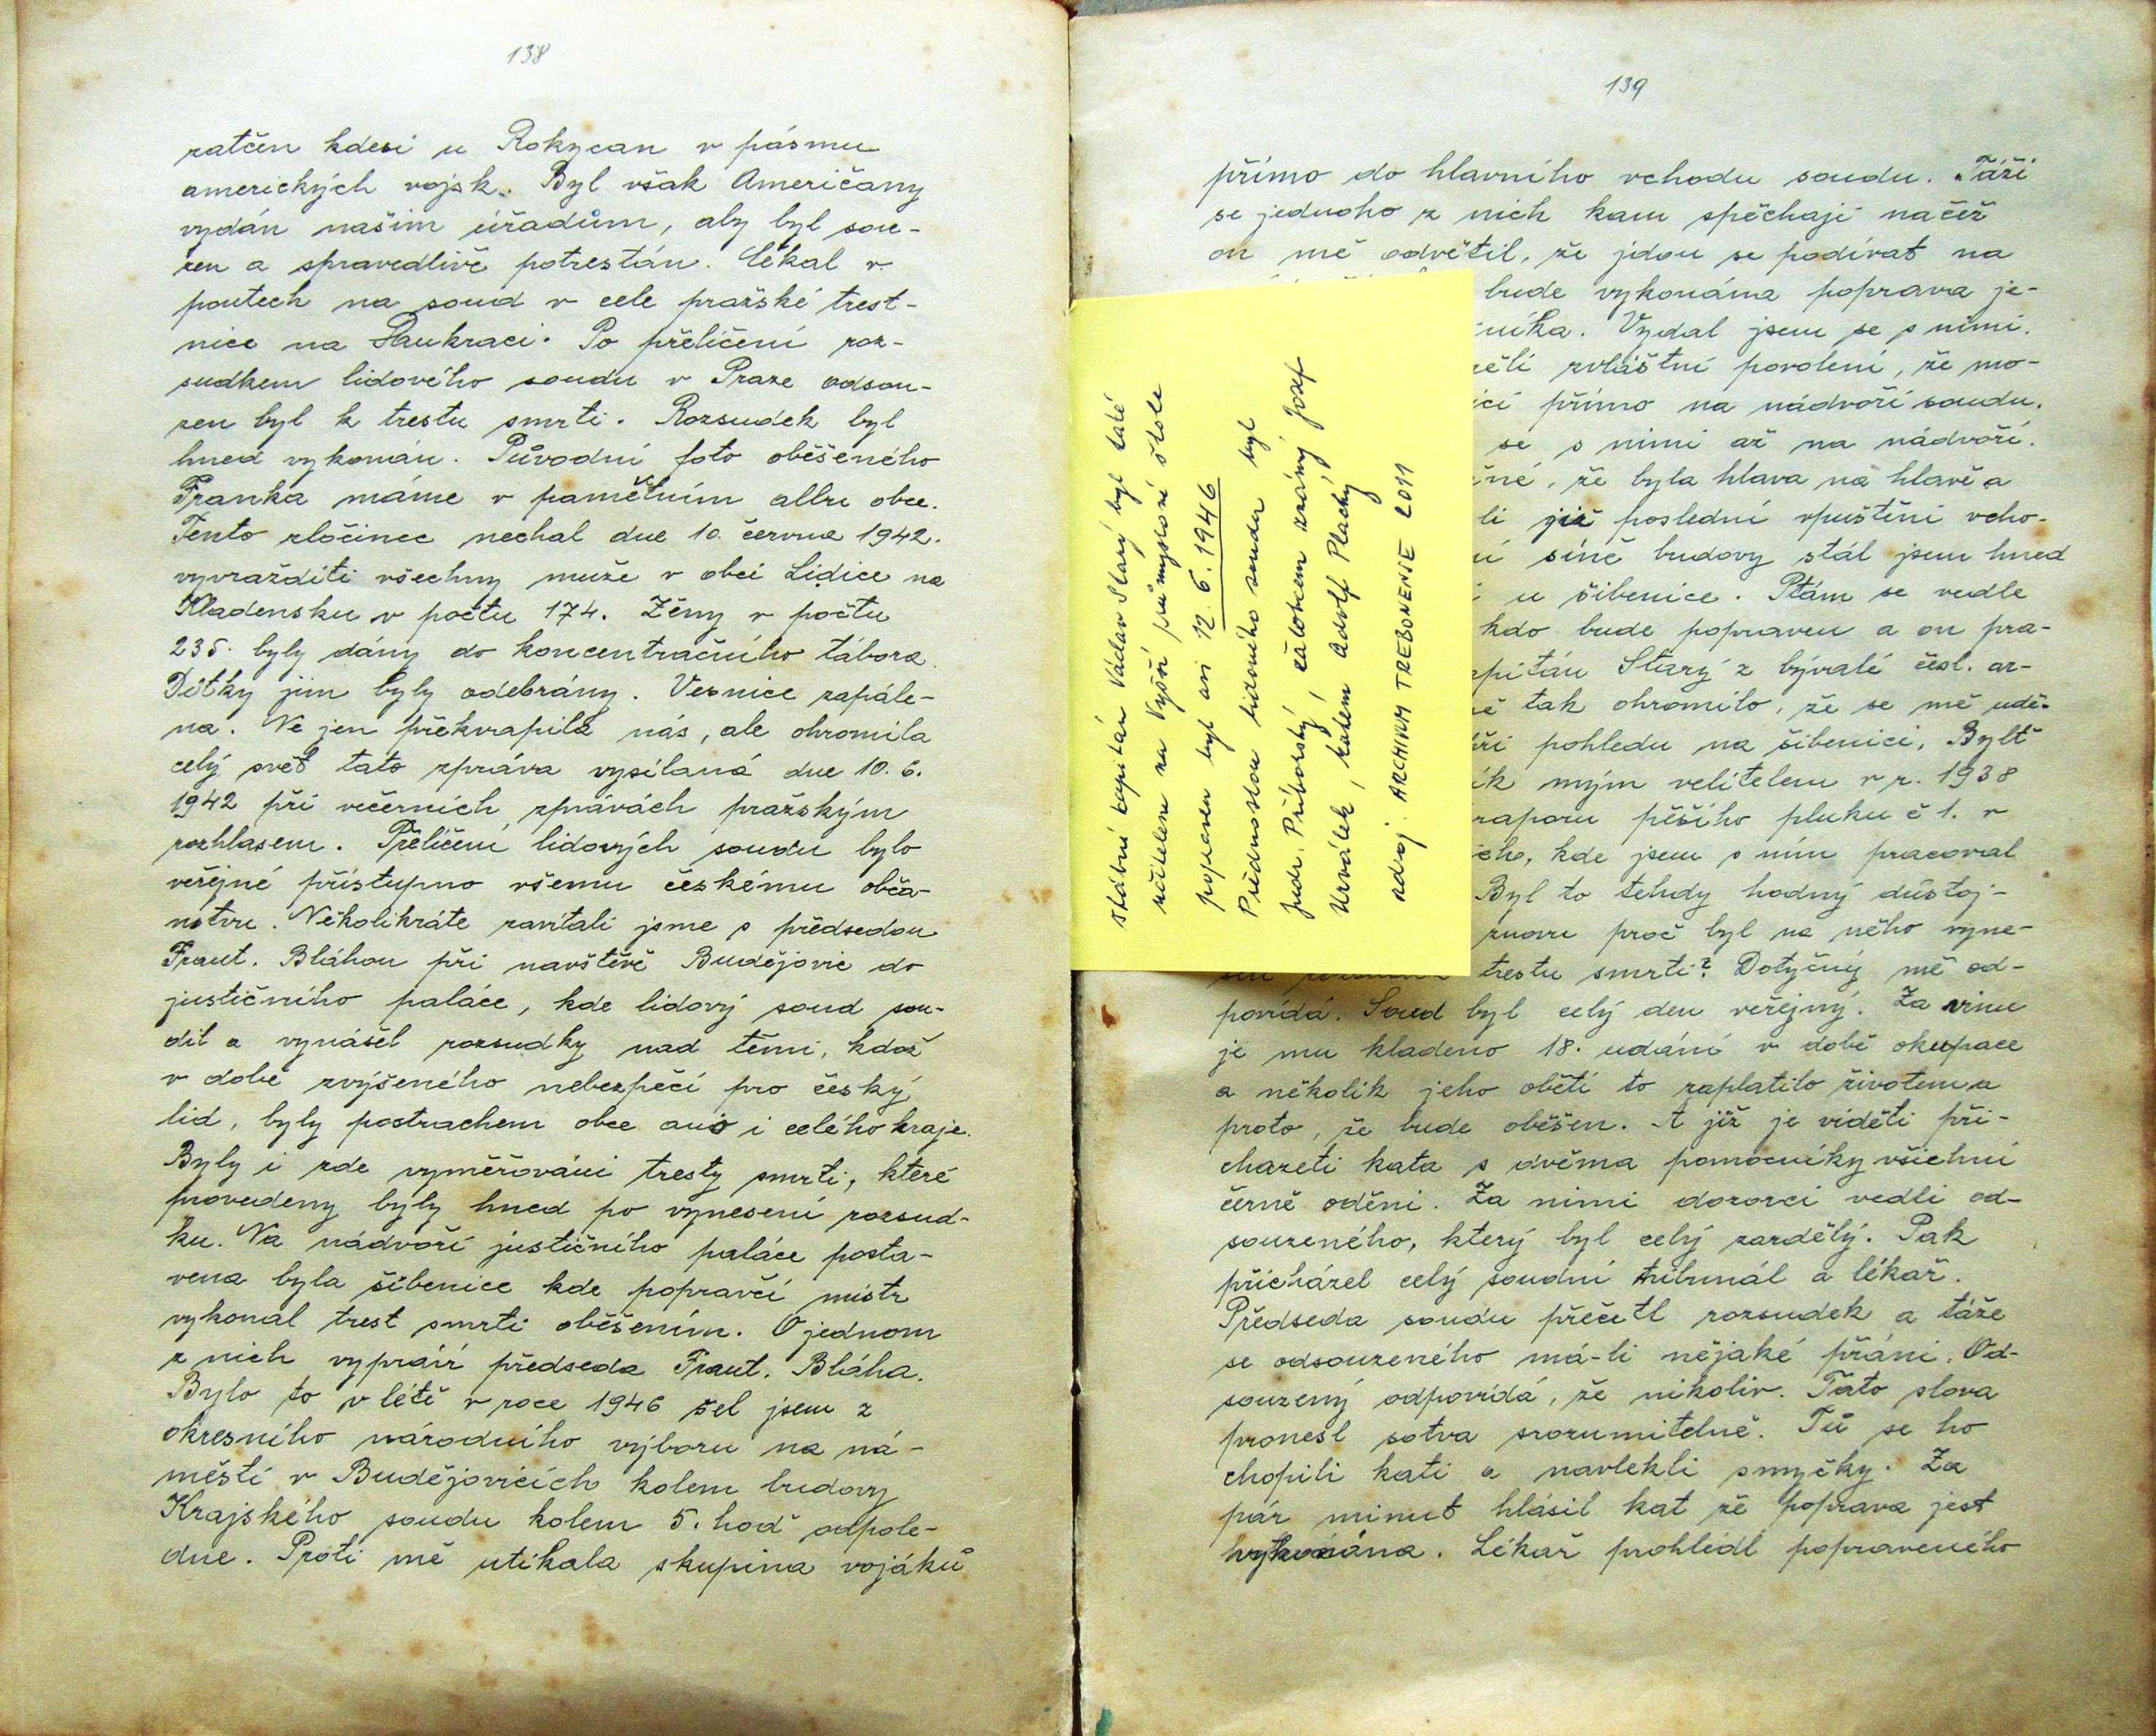 138
zatčen kdesi u Rokycan v pásmu
amerických vojsk. Byl však Američany
vydán našim úřadům, aby byl sou-
zen a spravedlivě potrestán. Čekal v
poutech na soud v cele pražské trest-
nice na Pankraci. Po přelíčení roz-
sudkem lidového soudu v Praze odsou-
zen byl k trestu smrti. Rozsudek byl
hned vykonán. Původní foto oběšeného
Franka máme v pamětním albu obce.
Tento zločinec nechal dne 10. června 1942.
vyvražditi všechny muže v obci Lidice na
Kladensku v počtu 174. Ženy v počtu
235. byly dány do koncentračního tábora.
Dítky jim byly odebrány. Vesnice zapále-
na. Ne jen překvapila nás, ale ohromila
celý svět tato zpráva vysílaná dne 10. 6.
1942 při večerních zprávách pražským
rozhlasem. Přelíčení lidových soudu bylo
veřejné přístupno všemu českému obča-
nstvu. Několikráte zavítali jsme s předsedou
Frant. Bláhou při navštěvě Budějovic do
justičního paláce, kde lidový soud sou-
dil a vynášel rozsudky nad těmi, kdož
v době zvýšeného nebezpečí pro český
lid, byly postrachem obce ano i celého kraje.
Byly i zde vyměřováni tresty smrti, které
provedeny byly hned po vynesení rozsud-
ku. Na nádvoří justičního paláce posta-
vena byla šibenice kde popravčí mistr
vykonal trest smrti oběšením. O jednom
z nich vypráví předseda Frant. Bláha.
Bylo to v létě v roce 1946 šel jsem z
okresního národního výboru na ná-
městí v Budějovicích kolem budovy
Krajského soudu kolem 5. hod odpole-
dne. Proti mě utíkala skupina vojáků
139
přímo do hlavního vchodu soudu. Táži
se jednoho z nich kam spěchají načež
on mě odvětil, že jdou se podívat na
bude vykonána poprava je-
níka. Vydal jsem se s nimi.
ěli zvláštní povolení, že mo-
ící přímo na nádvoří soudu.
se s nimi až na nádvoří.
né, že byla hlava na hlavě a
li již poslední vpuštění vcho-
í síně budovy stál jsem hned
u šibenice. Ptám se vedle
kdo bude popraven a on pra-
pitán Starý z bývalé čsl. ar-
ě tak ohromilo, že se mě udě-
ři pohledu na šibenici, Bylť
ík mým velitelem v r. 1938
raporu pěšího pluku č 1. v
ích, kde jsem s ním pracoval
Byl to tehdy hodný důstoj-
znovu proč byl na něho vyne-
trestu smrti? Dotyčný mě od-
povídá. Soud byl celý den veřejný. Za vinu
je mu kladeno 18. udání v době okupace
a několik jeho obětí to zaplatilo životem a
proto, že bude oběšen. A již je viděti při-
chazeti kata s dvěma pomocníky všichni
černě oděni. Za nimi dozorci vedli od-
souzeného, který byl celý zardělý. Pak
přicházel celý soudní tribunál a lékař.
Předseda soudu přečetl rozsudek a táže
se odsouzeného má-li nějaké přáni. Od-
souzený odpovídá, že nikoliv. Tato slova
pronesl sotva srozumitelně. Tu se ho
chopili kati a navlekli smyčky. Za
pár minut hlásil kat že poprava jest
vykonána. Lékař prohlédl popraveného
štábní kapitán Václav Starý byl také
učitelem na Vyšší průmyslové škole
popraven byl asi 12. 6. 1946
Přednostou lidového soudu byl
Judr. Příborský, žalobcem známý Josef
Urválek, katem Adolf Plachý
zdroj. ARCHIVUM TREBONENSE 2011